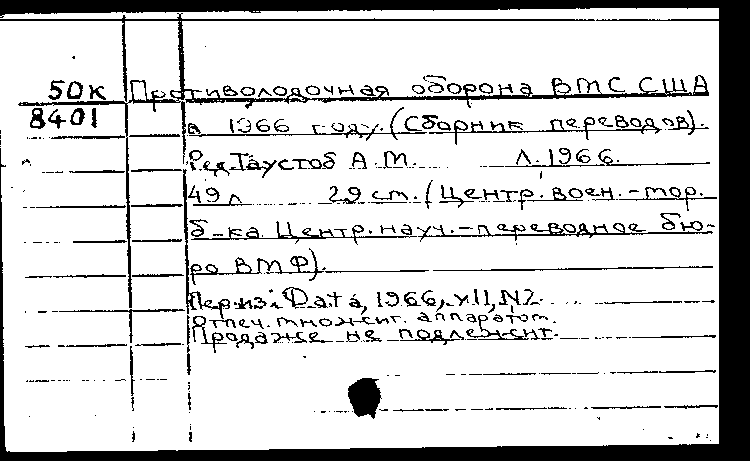 50к Противолодочная оборона ВМС США
8401 в 1966 году. (Сборник переводов).
Ред. Таустов А.М. Л. 1966.
49 л 29 cm. (Центр. воен.-мор.
б-ка Центр. науч.-переводное бю-
ро ВМФ).
Пер. из: Data, 1966, v.11, N2.
Отпеч. множит. аппаратом.
Продаже не подлежит.